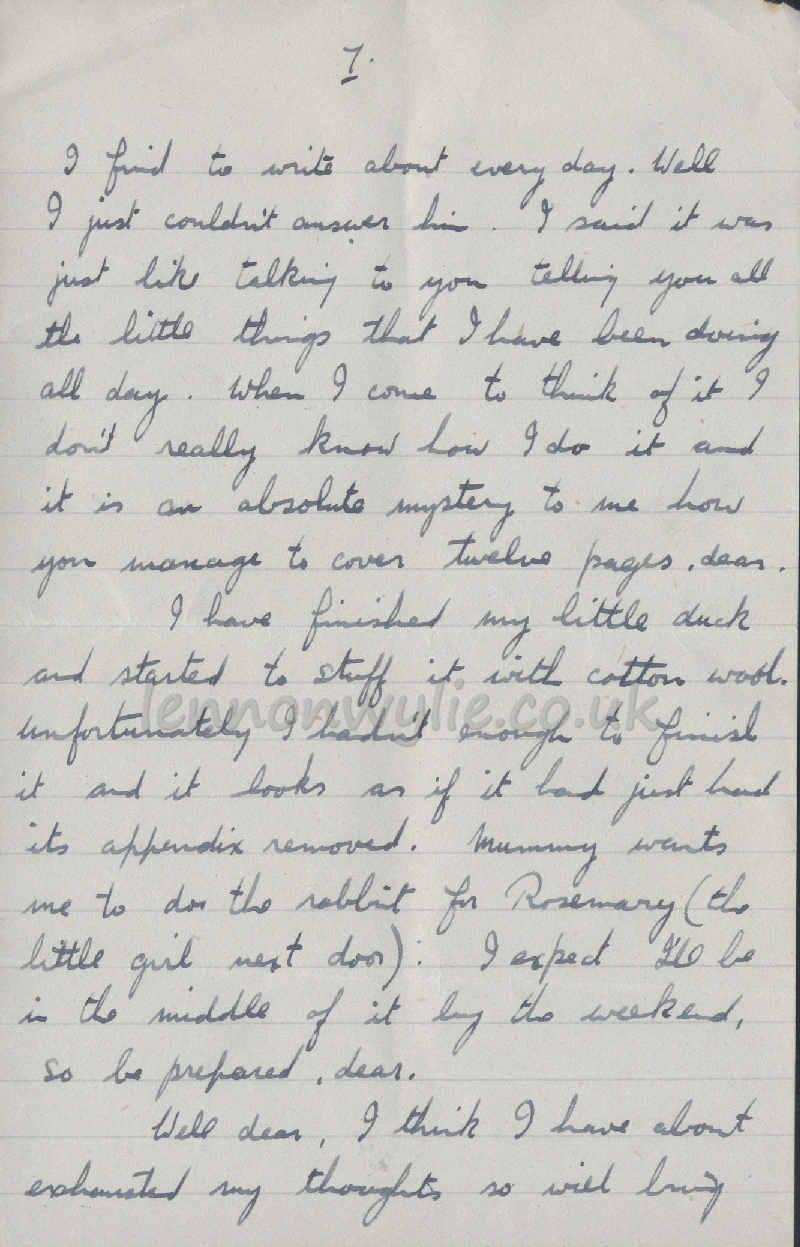 7.
I find to write about every day. Well
I just couldn't answer him. I said it was
just like talking to you telling you all
the little things that I have been doing
all day. When I come to think of it I
don't really know how I do it and
it is an absolute mystery to me how
you manage to cover twelve pages, dear.
I have finished my little duck
and started to stuff it with cotton wool.
lennonwylie.co.uk
Unfortunately I hadn't enough to finish
it and it looks as if it had just had
its appendix removed. Mummy wants
me to do the rabbit for Rosemary (the
little girl next door). I expect I'll be
in the middle of it by the weekend,
so be prepared, dear.
Well dear, I think I have about
exhausted my thoughts so will bring